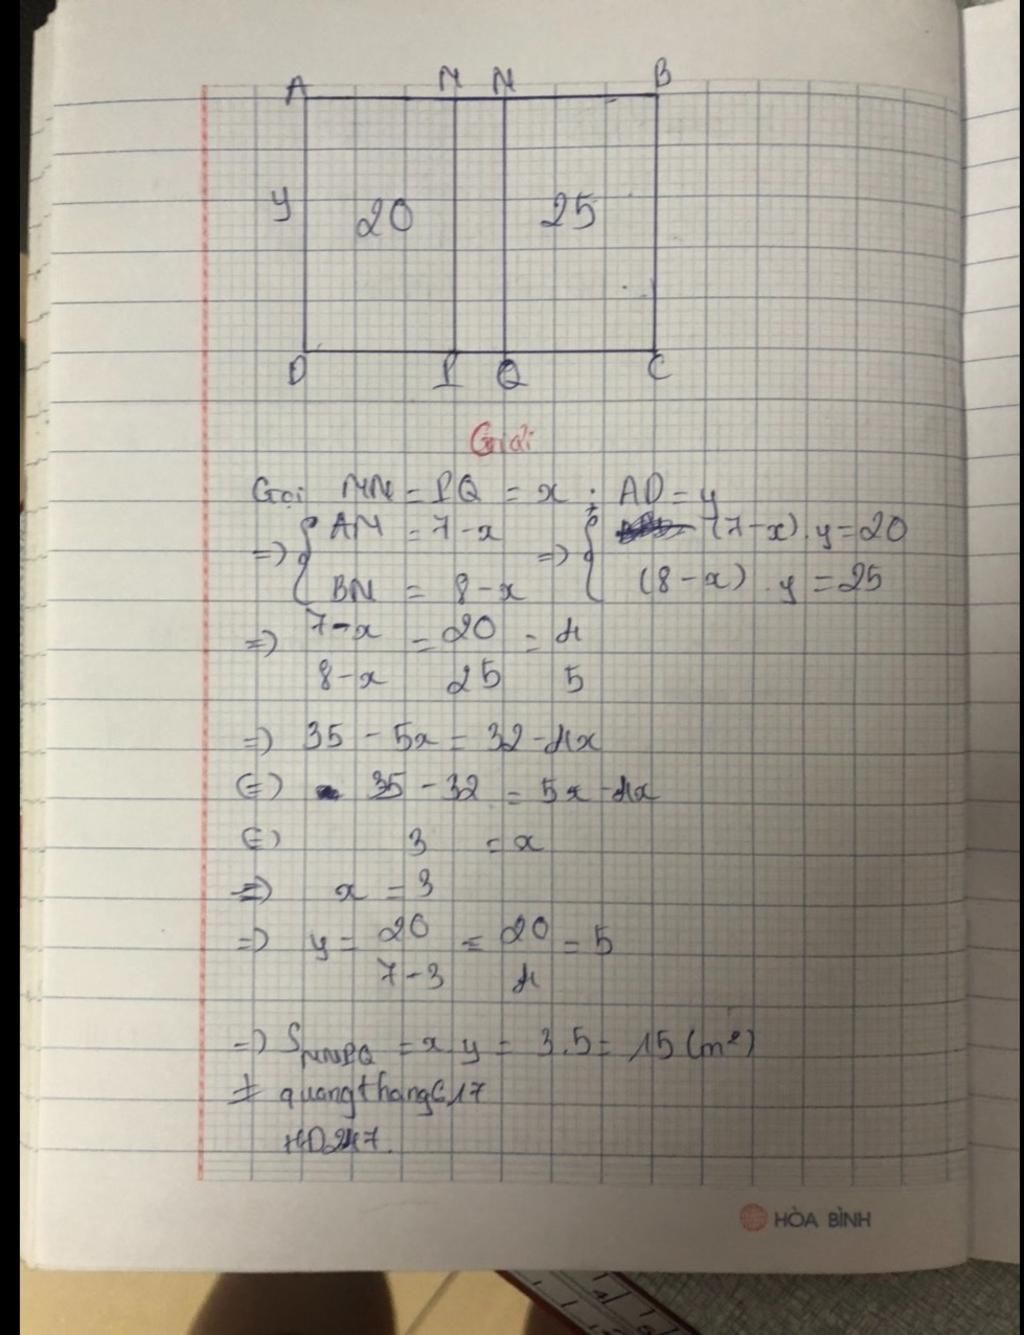 A M N B
y 20 25
D P Q C
Giải
Gọi MN = PQ = x ; AD = y
=> { AM = 7-x => { (7-x).y = 20
BN = 8-x (8-x).y = 25
=> 7-x = 20 = 4
8-x 25 5
=> 35 - 5x = 32 - 4x
(=) 35 - 32 = 5x - 4x
(=) 3 = x
=> x = 3
=> y = 20 = 20 = 5
7-3 4
=> SMNPQ = x.y = 3.5 = 15 (m²)
quangthang617
HD247.
HÒA BÌNH